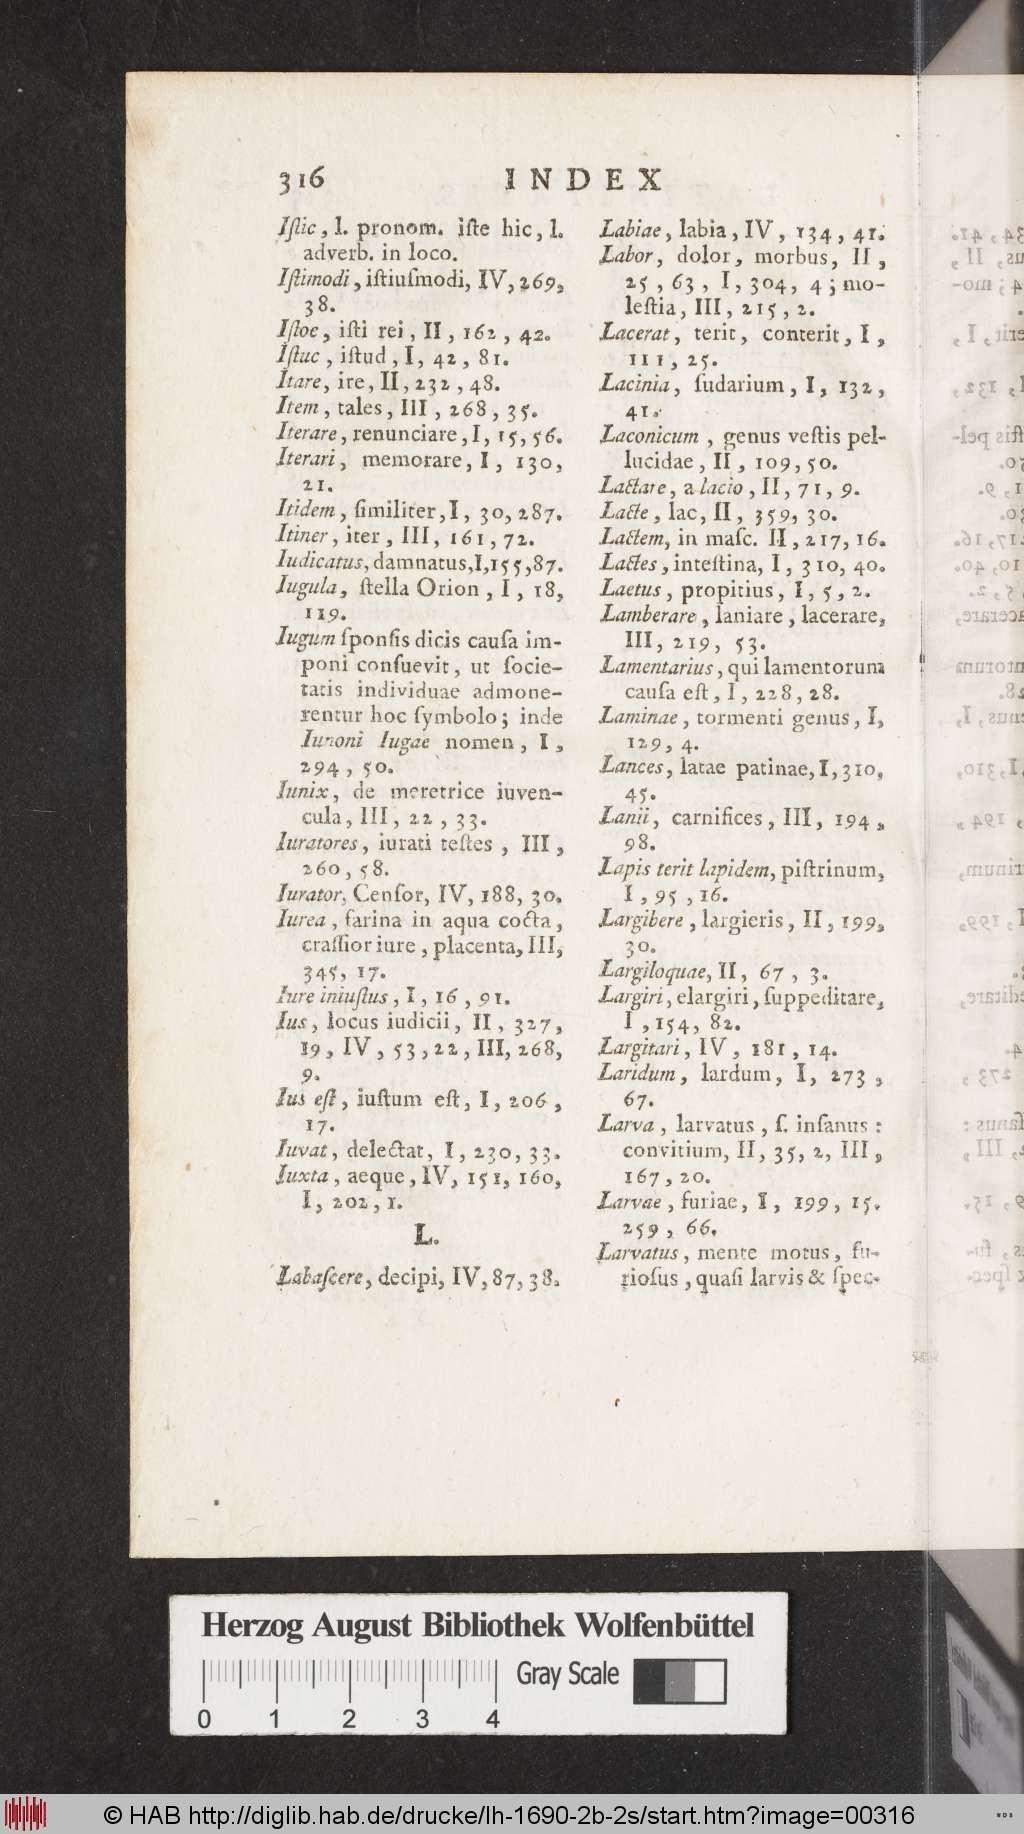 316 INDEX
Iſtic, l. pronom. iſte hic, l.
adverb. in loco.
Iſtimodi, iſtiuſmodi, IV, 269,
38.
Iſtoe, iſti rei, II, 162, 42.
Iſtuc, iſtud, I, 42, 81.
Itare, ire, II, 232, 48.
Item, tales, III, 268, 35.
Iterare, renunciare, I, 15, 56.
Iterari, memorare, I, 130,
21.
Itidem, ſimiliter, I, 30, 287.
Itiner, iter, III, 161, 72.
Iudicatus, damnatus, I, 155, 87.
Iugula, ſtella Orion, I, 18,
119.
Iugum ſponſis dicis cauſa im-
poni conſuevit, ut ſocie-
tatis individuae admone-
rentur hoc ſymbolo; inde
Iunoni Iugae nomen, I,
294, 50.
Iunix, de meretrice iuven-
cula, III, 22, 33.
Iuratores, iurati teſtes, III,
260, 58.
Iurator, Cenſor, IV, 188, 30.
Iurea, farina in aqua cocta,
craſſior iure, placenta, III,
345, 17.
Iure iniuſtus, I, 16, 91.
Ius, locus iudicii, II, 327,
19, IV, 53, 22, III, 268,
9.
Ius eſt, iuſtum eſt, I, 206,
17.
Iuvat, delectat, I, 230, 33.
Iuxta, aeque, IV, 151, 160,
I, 202, 1.
L.
Labaſcere, decipi, IV, 87, 38.
Labiae, labia, IV, 134, 41.
Labor, dolor, morbus, II,
25, 63, I, 304, 4; mo-
leſtia, III, 215, 2.
Lacerat, terit, conterit, I,
111, 25.
Lacinia, ſudarium, I, 132,
41.
Laconicum, genus veſtis pel-
lucidae, II, 109, 50.
Lactare, a lacio, II, 71, 9.
Lacte, lac, II, 359, 30.
Lactem, in maſc. II, 217, 16.
Lactes, inteſtina, I, 310, 40.
Laetus, propitius, I, 5, 2.
Lamberare, laniare, lacerare,
III, 219, 53.
Lamentarius, qui lamentorum
cauſa eſt, I, 228, 28.
Laminae, tormenti genus, I,
129, 4.
Lances, latae patinae, I, 310,
45.
Lanii, carnifices, III, 194,
98.
Lapis terit lapidem, piſtrinum,
I, 95, 16.
Largibere, largieris, II, 199,
30.
Largiloquae, II, 67, 3.
Largiri, elargiri, ſuppeditare,
I, 154, 82.
Largitari, IV, 181, 14.
Laridum, lardum, I, 273,
67.
Larva, larvatus, ſ. inſanus:
convitium, II, 35, 2, III,
167, 20.
Larvae, furiae, I, 199, 15.
259, 66.
Larvatus, mente motus, fu-
rioſus, quaſi larvis & ſpec-
Herzog August Bibliothek Wolfenbüttel
Gray Scale
0 1 2 3 4
© HAB http://diglib.hab.de/drucke/lh-1690-2b-2s/start.htm?image=00316